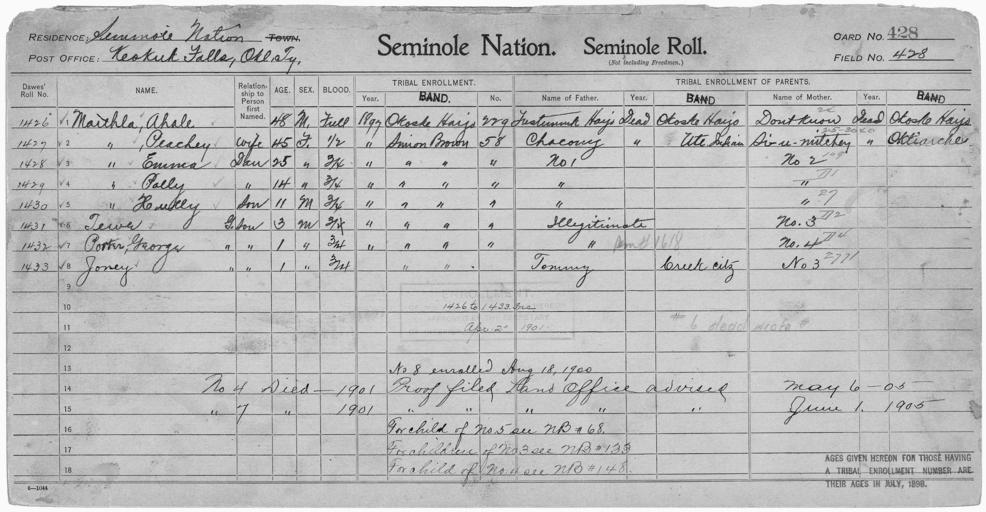 RESIDENCE: Seminole Nation TOWN. Seminole Nation. Seminole Roll. CARD NO. 428
POST OFFICE: Keokuk Falls, Okl. Ty. (Not including Freedmen.) FIELD NO. 428
Dawes' Roll No. NAME. Relationship to Person first Named. AGE. SEX. BLOOD. TRIBAL ENROLLMENT. TRIBAL ENROLLMENT OF PARENTS.
Year. BAND. No. Name of Father. Year. BAND Name of Mother. Year. BAND
1426 1 Maithla, Ahale 48 M. Full 1897 Okoske Hajo 229 Fustunnuk Hajo Dead Okoske Hajo Don't know Dead Okoske Hajo
1427 2 " Peachey Wife 45 F. 1/2 " Simon Brown 58 Chacony " Ute Indian "
1428 3 " Emma Dau 25 " 3/4 " " " " No 1 No 2
1429 4 " Polly " 14 " 3/4 " " " " " "
1430 5 " Hully Son 11 M 3/4 " " " " " "
1431 6 Tewa G. Son 3 M 3/4 " " " " Illegitimate No. 3
1432 7 Porter, George " " 1 " 3/4 " " " " " No. 4
1433 8 Joney " " 1 " 3/4 " " Tommy Creek citz No 3
9
10 1426 to 1433 Inc
11 Apr 2 1901 # 6 dead
12
13 No 8 enrolled Aug 18, 1900
14 No 4 Died — 1901 Proof filed Land Office advised May 6 - 05
15 " 7 " 1901 " " " " " June 1. 1905
16 For child of No. 5 see NB # 68.
17 For children of No 3 see NB # 133
18 For child of No. 4 see NB # 148.
AGES GIVEN HEREON FOR THOSE HAVING
A TRIBAL ENROLLMENT NUMBER ARE
THEIR AGES IN JULY, 1898.
6—1044